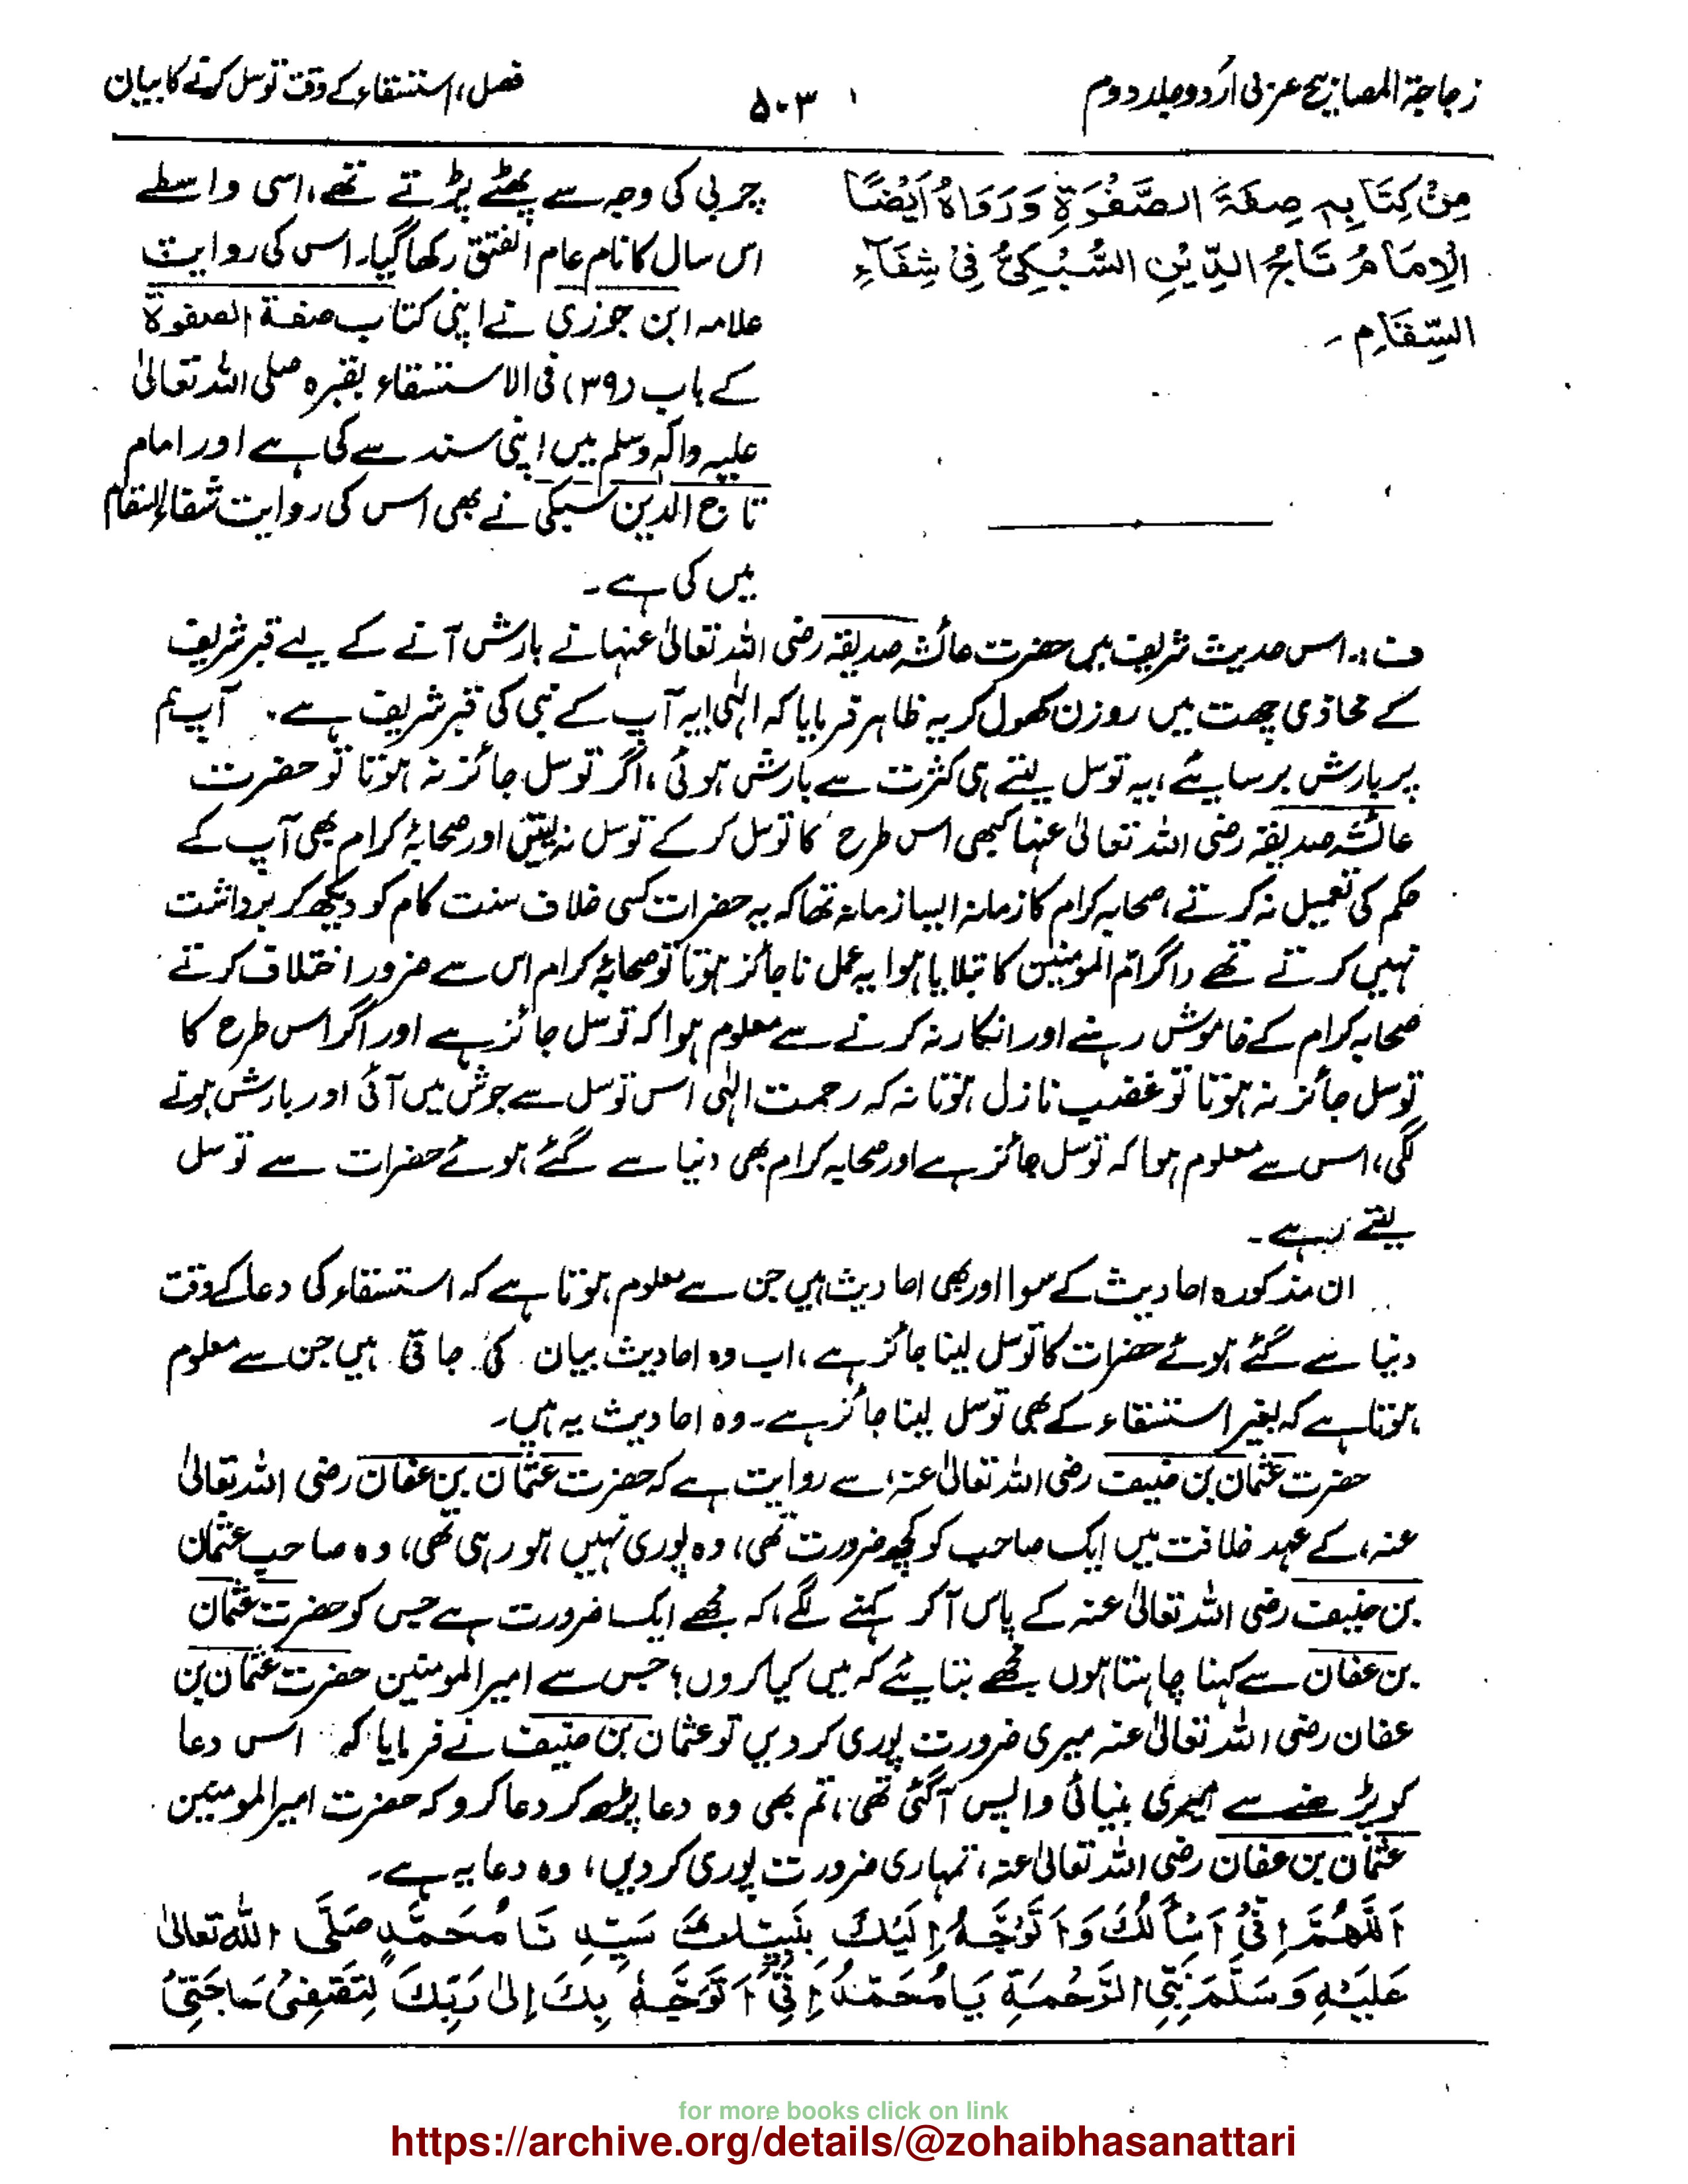 زجاجۃ المصابیح عربی اُردو جلد دوم
۵۰۳
فصل، استسقاء کے وقت توسل کرنے کا بیان
مِنْ كِتَابِهٖ صِفَةَ الصَّفْوَةِ وَرَوَاهُ اَيْضًا
الْاِمَامُ تَاجُ الدِّيْنِ السُّبْكِيُّ فِيْ شِفَآءِ
السِّقَامِ ۔
چربی کی وجہ سے پھٹے پڑتے تھے، اسی واسطے
اس سال کا نام عام الفتق رکھا گیا۔ اس کی روایت
علامہ ابن جوزی نے اپنی کتاب صفۃ الصفوۃ
کے باب (۳۹) فی الاستسقاء بقبرہ صلی اللہ تعالیٰ
علیہ واٰلہ وسلم میں اپنی سند سے کی ہے اور امام
تاج الدین سبکی نے بھی اس کی روایت شفاء السقام
میں کی ہے۔
ف :۔ اس حدیث شریف میں حضرت عائشہ صدیقہ رضی اللہ تعالیٰ عنہا نے بارش آنے کے لیے قبر شریف
کے محاذی چھت میں روزن کھول کر یہ ظاہر فرمایا کہ الٰہی! یہ آپ کے نبی کی قبر شریف ہے۔ آپ ہم
پر بارش برسایئے، یہ توسل لیتے ہی کثرت سے بارش ہوئی، اگر توسل جائز نہ ہوتا تو حضرت
عائشہ صدیقہ رضی اللہ تعالیٰ عنہا کبھی اس طرح کا توسل کر کے توسل نہ لیتیں اور صحابۂ کرام بھی آپ کے
حکم کی تعمیل نہ کرتے، صحابہ کرام کا زمانہ ایسا زمانہ تھا کہ یہ حضرات کسی خلاف سنت کام کو دیکھ کر برداشت
نہیں کرتے تھے، اگر ام المومنین کا بتلایا ہوا یہ عمل ناجائز ہوتا تو صحابۂ کرام اس سے ضرور اختلاف کرتے
صحابہ کرام کے خاموش رہنے اور انکار نہ کرنے سے معلوم ہوا کہ توسل جائز ہے اور اگر اس طرح کا
توسل جائز نہ ہوتا تو غضب نازل ہوتا نہ کہ رحمت الٰہی اس توسل سے جوش میں آئی اور بارش ہونے
لگی، اس سے معلوم ہوا کہ توسل جائز ہے اور صحابہ کرام بھی دنیا سے گئے ہوئے حضرات سے توسل
لیتے رہے۔
ان مذکورہ احادیث کے سوا اور بھی احادیث ہیں جن سے معلوم ہوتا ہے کہ استسقاء کی دعا کے وقت
دنیا سے گئے ہوئے حضرات کا توسل لینا جائز ہے، اب وہ احادیث بیان کی جاتی ہیں جن سے معلوم
ہوتا ہے کہ بغیر استسقاء کے بھی توسل لینا جائز ہے۔ وہ احادیث یہ ہیں۔
حضرت عثمان بن حنیف رضی اللہ تعالیٰ عنہ، سے روایت ہے کہ حضرت عثمان بن عفان رضی اللہ تعالیٰ
عنہ، کے عہد خلافت میں ایک صاحب کو کچھ ضرورت تھی، وہ پوری نہیں ہو رہی تھی، وہ صاحب عثمان
بن حنیف رضی اللہ تعالیٰ عنہ کے پاس آ کر کہنے لگے، کہ مجھے ایک ضرورت ہے جس کو حضرت عثمان
بن عفان سے کہنا چاہتا ہوں مجھے بتایئے کہ میں کیا کروں؟ جس سے امیر المومنین حضرت عثمان بن
عفان رضی اللہ تعالیٰ عنہ میری ضرورت پوری کر دیں تو عثمان بن حنیف نے فرمایا کہ اس دعا
کو پڑھنے سے میری بینائی واپس آگئی تھی، تم بھی وہ دعا پڑھ کر دعا کرو کہ حضرت امیر المومنین
عثمان بن عفان رضی اللہ تعالیٰ عنہ، تمہاری ضرورت پوری کر دیں، وہ دعا یہ ہے۔
اَللّٰهُمَّ اِنِّيْ اَسْأَلُكَ وَاَتَوَجَّهُ اِلَيْكَ بِنَبِيِّكَ سَيِّدِ نَا مُحَمَّدٍ صَلَّى اللّٰهُ تَعَالٰى
عَلَيْهِ وَسَلَّمَ نَبِيِّ الرَّحْمَةِ يَا مُحَمَّدُ اِنِّيْ اَتَوَجَّهُ بِكَ اِلٰى رَبِّكَ لِتَقْضِيَ حَاجَتِيْ
for more books click on link
https://archive.org/details/@zohaibhasanattari